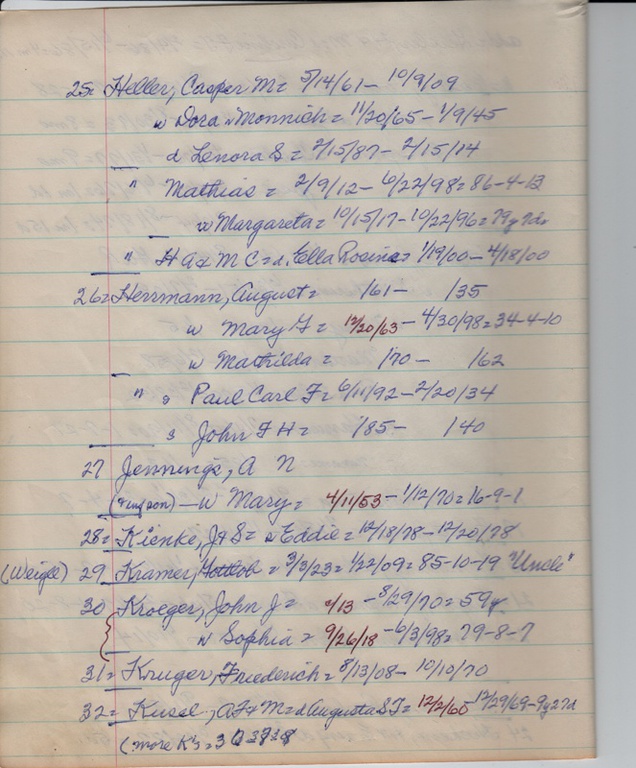 25= Heller, Casper M= 5/14/61- 10/9/09
w Dora n Monnich= 11/20/65-1/9/45
d Lenora S= 2/15/87- 2/15/14
" Mathias= 2/9/12- 6/22/98=86-4-13
w Margareta= 10/15/17-10/22/96=79y 7ds
" H A & M C= d. Ella Rosina= 1/19/00-4/18/00
26= Herrmann, August= /61- /35
w Mary F= 12/20/63-4/30/98=34-4-10
w Mathilda= /70- /62
" s Paul Carl F= 6/11/92-2/20/34
s John F H= /85- /40
27 Jennings, A N
-w Mary= 4/11/53-1/12/70=16-9-1
28= Kienke, J & S= Eddie= 12/18/78-12/20/78
(Weigel) 29 Kramer, Gottlob= 3/3/23=1/22/09=85-10-19 "Uncle"
30 Kroeger, John J= /13-8/29/70=59y
w Sophia= 9/26/18-6/3/98=79-8-7
31= Kruger, Friederich= 8/13/08-10/10/70
32= Kusel, A F & M= d Augusta S F= 12/2/60-12/29/69-9y 27d
(more K's=